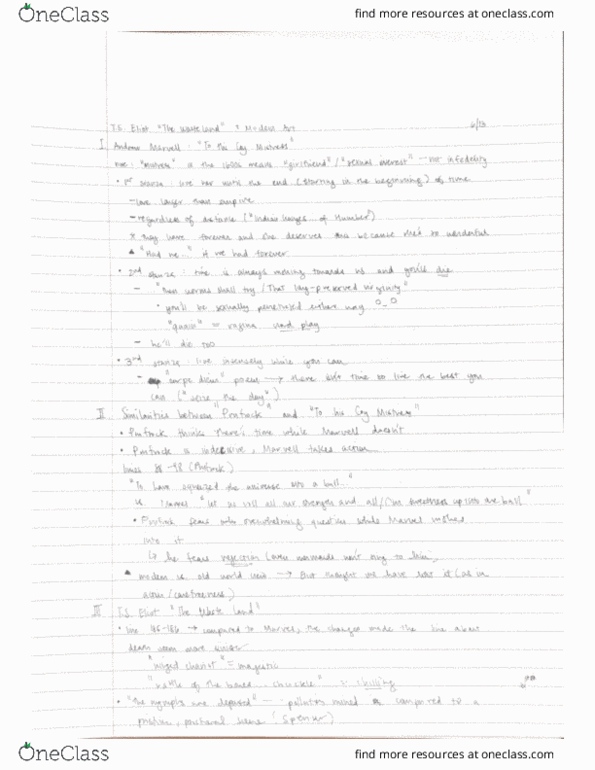 OneClass
find more resources at oneclass.com
T.S. Eliot "The Waste Land" & Modern Art
I Andrew Marvell: "To His Coy Mistress"
"mistress" in the 1600s means "girlfriend"/"sexual interest" — not infidelity
• 1st stanza: live far until the end (starting in the beginning) of time
- love larger than empire
- regardless of distance ("Indian Ganges... of Humber")
* they have forever and she deserves this because she's so wonderful
"Had we..." if we had forever
• 2nd stanza: time is always moving towards us and you'll die
- "then worms shall try/That long-preserved virginity"
• you'll be sexually penetrated either way 0_0
"quaint" = vagina word play
- he'll die too
• 3rd stanza: live intensely while you can
- "carpe diem" poem → there isn't time so live the best you
can ("seize the day")
II Similarities between "Prufrock" and "To his Coy Mistress"
• Prufrock thinks there's time while Marvell doesn't
• Prufrock is indecisive, Marvell takes action
lines -98 (Prufrock)
"To have squeezed the universe into a ball"
vs. "let us roll all our strength and all/Our sweetness up into one ball"
• Prufrock fears overwhelming question while Marvell rushes
into it
↳ he fears rejection (even mermaids won't sing to him)
modern vs old world view → But thought we have lost it (as in
action/carefreeness)
III T.S. Eliot "The Waste Land"
• line 185-186 → compared to Marvell, the changes made the line about
death seem more
"winged chariot" = majestic
"rattle of the bones... chuckle" = chilling
• "The nymphs are departed" — pollution ruined compared to a
pastoral scene (Spenser)
OneClass
find more resources at oneclass.com